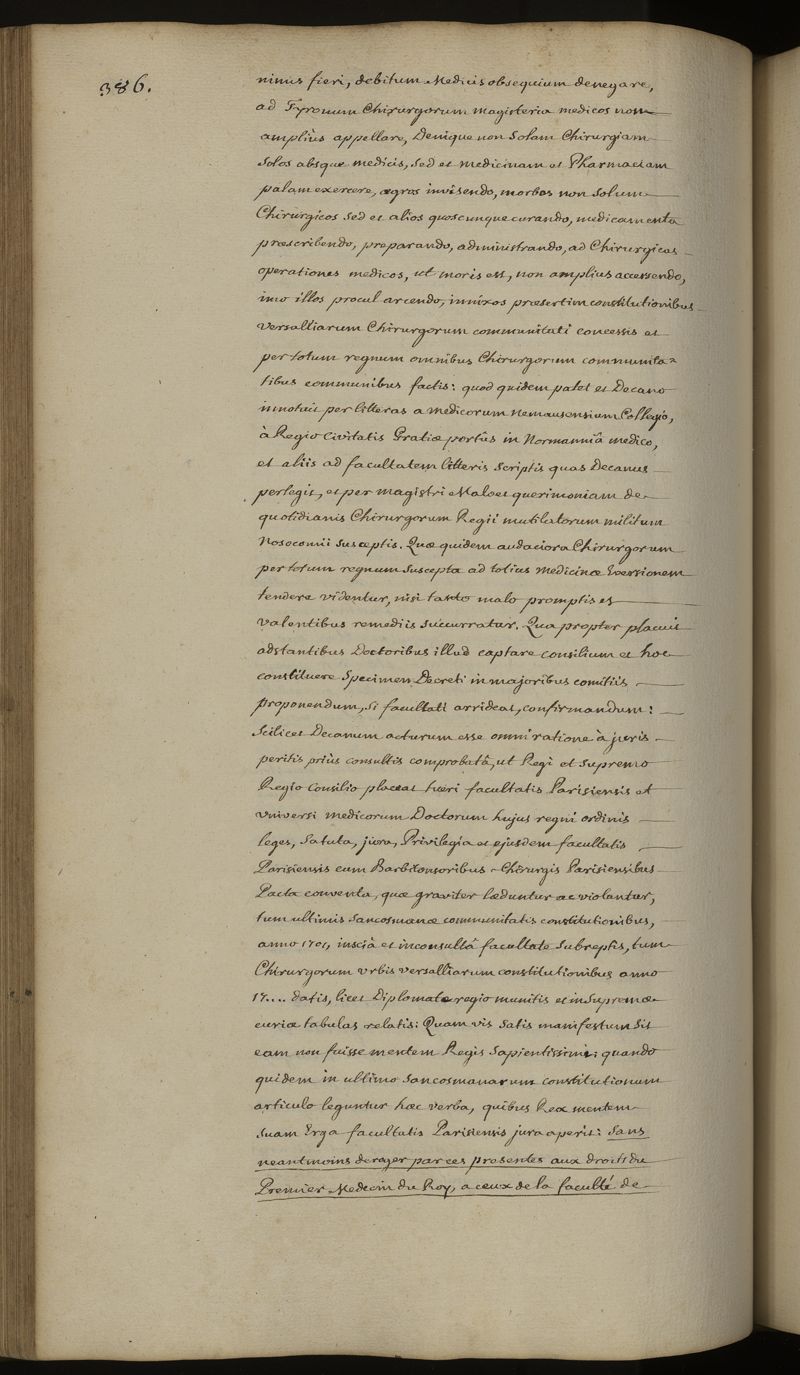 386.
nimus fieri, debitum Medicis obsequium denegare,
ad Tyronum Chirurgorum magisteria medicos non
ampliùs appellare, Denique non Solam Chirurgiam
Solos absque medicis, Sed et medicinam et Pharmaciam
palam exercere, ægros invisendo, morbos non Solum
Chirurgicos Sed et alios quoscunque curando, medicamenta
præscribendo, preparando, administrando, ad Chirurgicas
operationes medicos, ut moris est, non amplius accessendo,
imo illos procul arcendo, innixos præsertim constitutionibus
Versalliarum Chirurgorum communitati concessis et
per totum regnum omnibus Chirurgorum communita=
tibus communibus factis: quod quidem patet et Decano
innotuit per litteras a medicorum nemausensium Collegio,
à Regio Civitatis Gratiæ portûs in Normanniâ medico,
et aliis ad facultatem litteris Scriptis quas Decanus
perlegit, et per magistri Maloet querimoniam de
quotidianis Chirurgorum Regii mutilatorum militum
Nosocomii Susceptis. Quæ quidem audaciora Chirurgorum
per totum regnum Suscepta ad totius medicinæ Eversionem
tendere videntur, nisi tanto malo promptis et
valentibus remediis Succurratur. Qua propter placuit
adstantibus Doctoribus illud captare consilium et hoc
constituere Specimen Decreti in majoribus comitiis
proponendum, Si facultati arrideat, confirmandum:
Scilicet Decanum acturum esse omni ratione à juris
peritis priùs consultis comprobatâ, ut Regi et Supremo
Regio Consilio placeat tueri facultatis Parisiensis et
universi medicorum Doctorum hujus regni ordinis
leges, Satuta, jura, Privilegia et ejusdem facultatis
Parisiensis cum Barbitonsoribus Chirurgis Parisiensibus
Pacta conventa, quæ graviter læduntur ac violantur,
tum ultimis Sancosmanæ communitatis constitutionibus,
anno 1701, insciâ et inconsultâ facultate Subreptis, tum
Chirurgorum urbis versalliarum constitutionibus anno
17.... datis, licet Diplomate regio munitis et in Supremæ
curiæ tabulas relatis: Quam vis Satis manifestum Sit
eam non fuisse mentem Regis Sapientissimi; quando
quidem in ultimo Sancosmanarum constitutionum
articulo leguntur hæc verba, quibus Rex mentem
Suam Erga facultatis Parisiensis jura aperit: Sans
neantmoins deroger par ces presentes aux droits du
Premier Medecin du Roy, a ceux de la faculté de